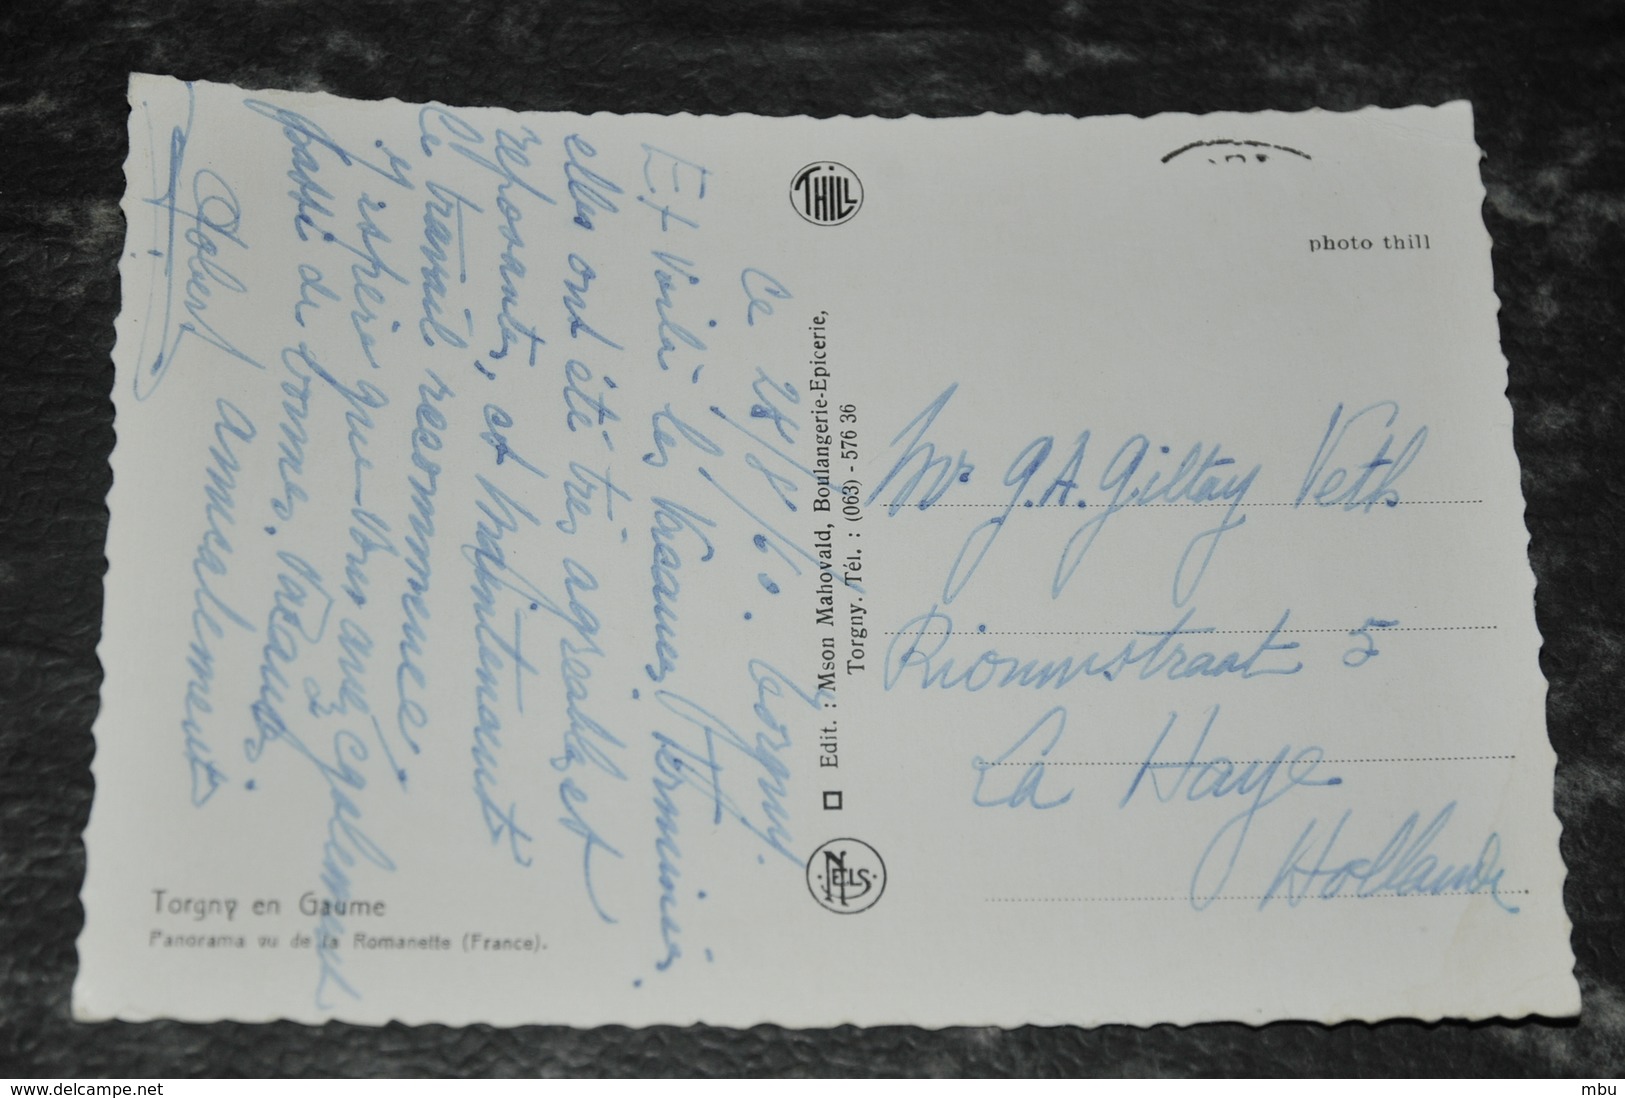 Ce 28/8/60. Torgny.
Et voilà les vacances terminées.
elles ont été très agréables et
reposantes, et maintenant
le travail recommence.
J'espère que vous avez également
passé de bonnes vacances.
Robert amicalement
Torgny en Gaume
Panorama vu de la Romanette (France).
THILL
Edit. : Mson Mahovald, Boulangerie-Epicerie,
Torgny. Tél. : (063) - 576 36
NELS
photo thill
Mr G.A. Giltay Veth
Riouwstraat 5
La Haye
Hollande
www.delcampe.net
mbu